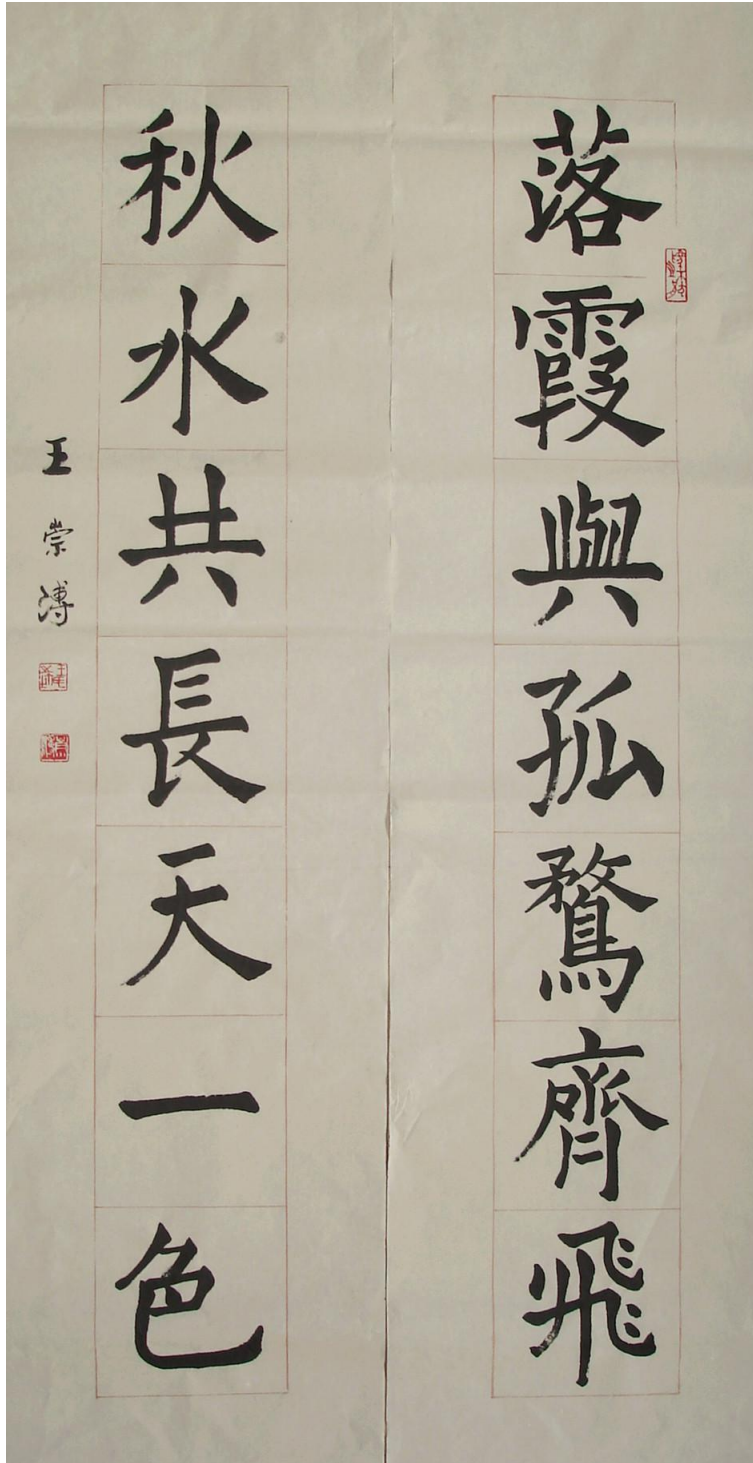 落霞與孤鶩齊飛
秋水共長天一色
王崇溥